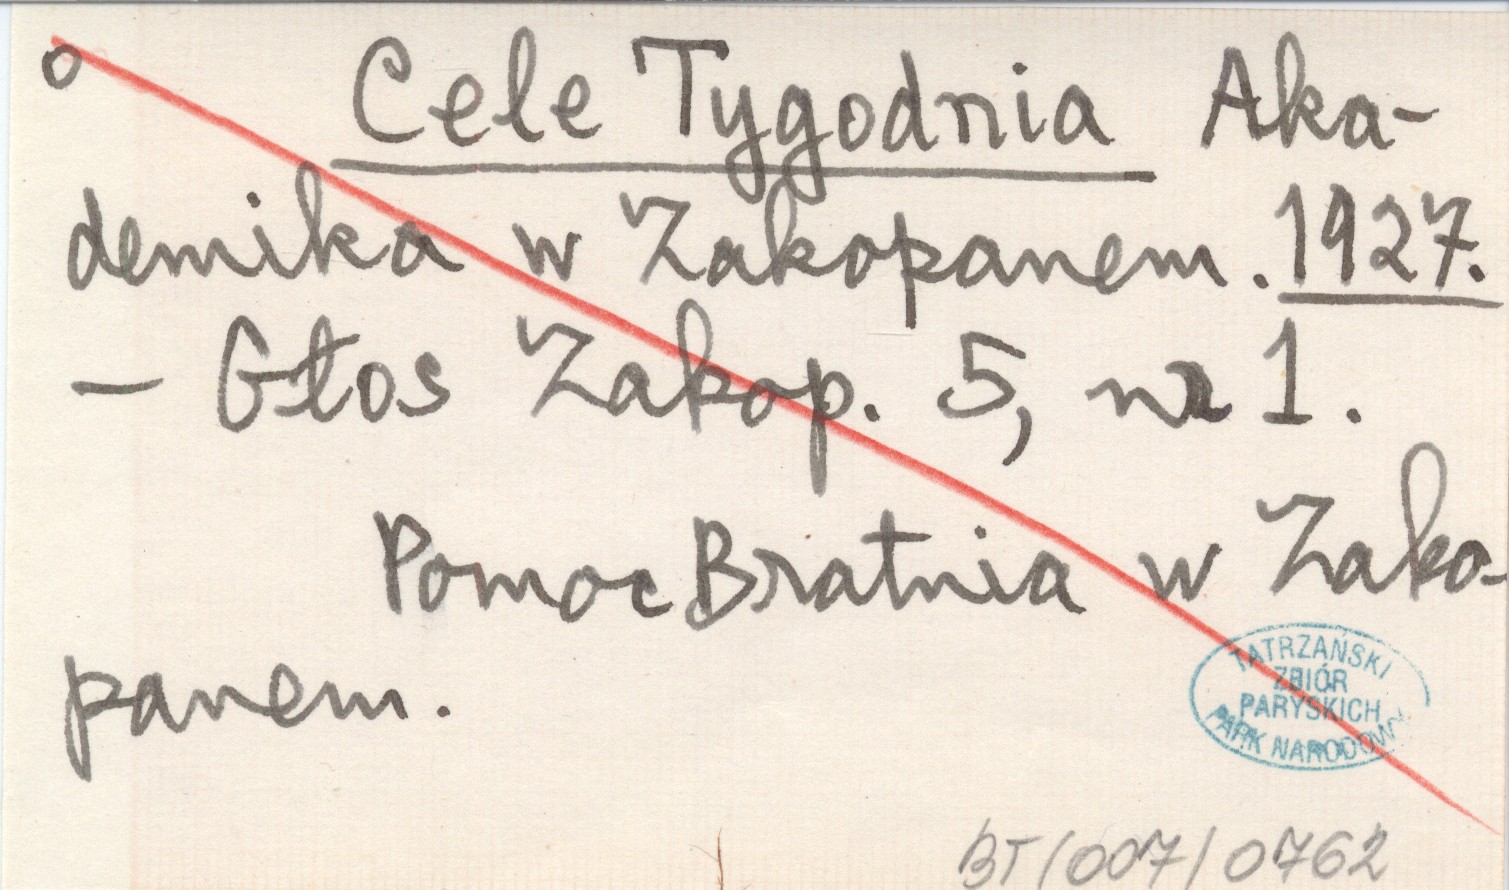 o Cele Tygodnia Aka-
demika w Zakopanem. 1927.
— Głos Zakop. 5, nr 1.
Pomoc Bratnia w Zako-
panem.
TATRZAŃSKI
ZBIÓR
PARYSKICH
PARK NARODOWY
BT/007/0762